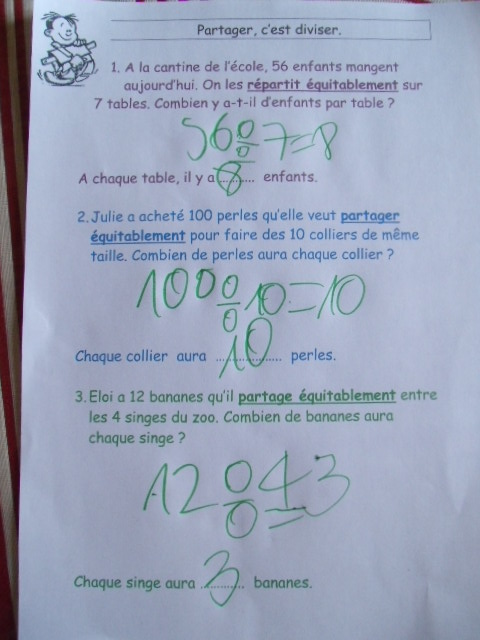 Partager, c'est diviser.
1. A la cantine de l'école, 56 enfants mangent
aujourd'hui. On les répartit équitablement sur
7 tables. Combien y a-t-il d'enfants par table ?
56÷7=8
A chaque table, il y a 8 enfants.
2. Julie a acheté 100 perles qu'elle veut partager
équitablement pour faire des 10 colliers de même
taille. Combien de perles aura chaque collier ?
100÷10=10
Chaque collier aura 10 perles.
3. Eloi a 12 bananes qu'il partage équitablement entre
les 4 singes du zoo. Combien de bananes aura
chaque singe ?
12÷4=3
Chaque singe aura 3 bananes.